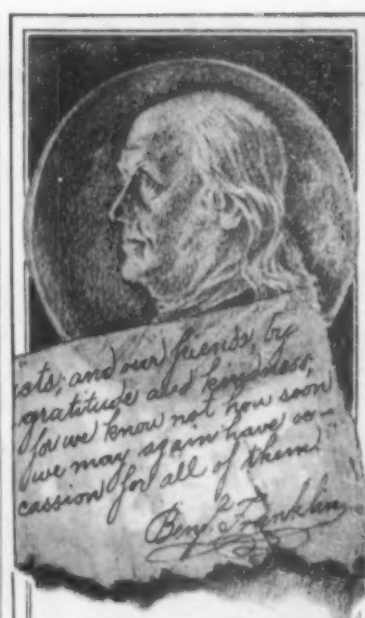 acts; and our friends by
gratitude and kindness,
for we know not how soon
we may again have oc-
cassion for all of them.
Benj. Franklin